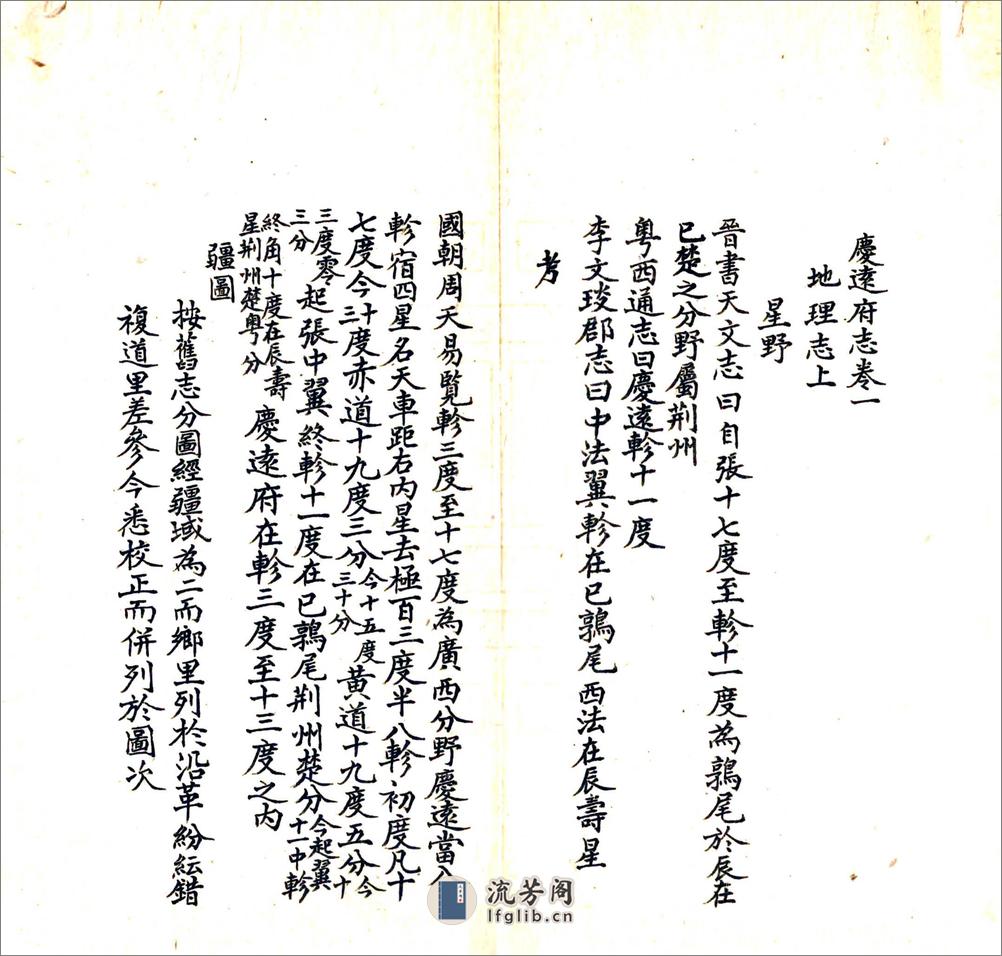 慶遠府志卷一
地理志上
星野
晉書天文志曰自張十七度至軫十一度為鶉尾於辰在
巳楚之分野屬荆州
粵西通志曰慶遠軫十一度
李文琰郡志曰中法翼軫在巳鶉尾西法在辰壽星
考
國朝周天易覽軫三度至十七度為廣西分野慶遠當入
軫宿四星名天車距右內星去極百三度半八軫初度凡十
七度今十三度赤道十九度三分今十五度三十分黃道十九度五分今十
三度零三分起張中翼終軫十一度在巳鶉尾荆州楚分今起翼十一中軫
終角十度在辰壽星荆州楚粵分慶遠府在軫三度至十三度之內
疆圖
按舊志分圖經疆域為二而鄉里列於沿革紛紜錯
複道里差參今悉校正而併列於圖次
流芳阁
lfglib.cn